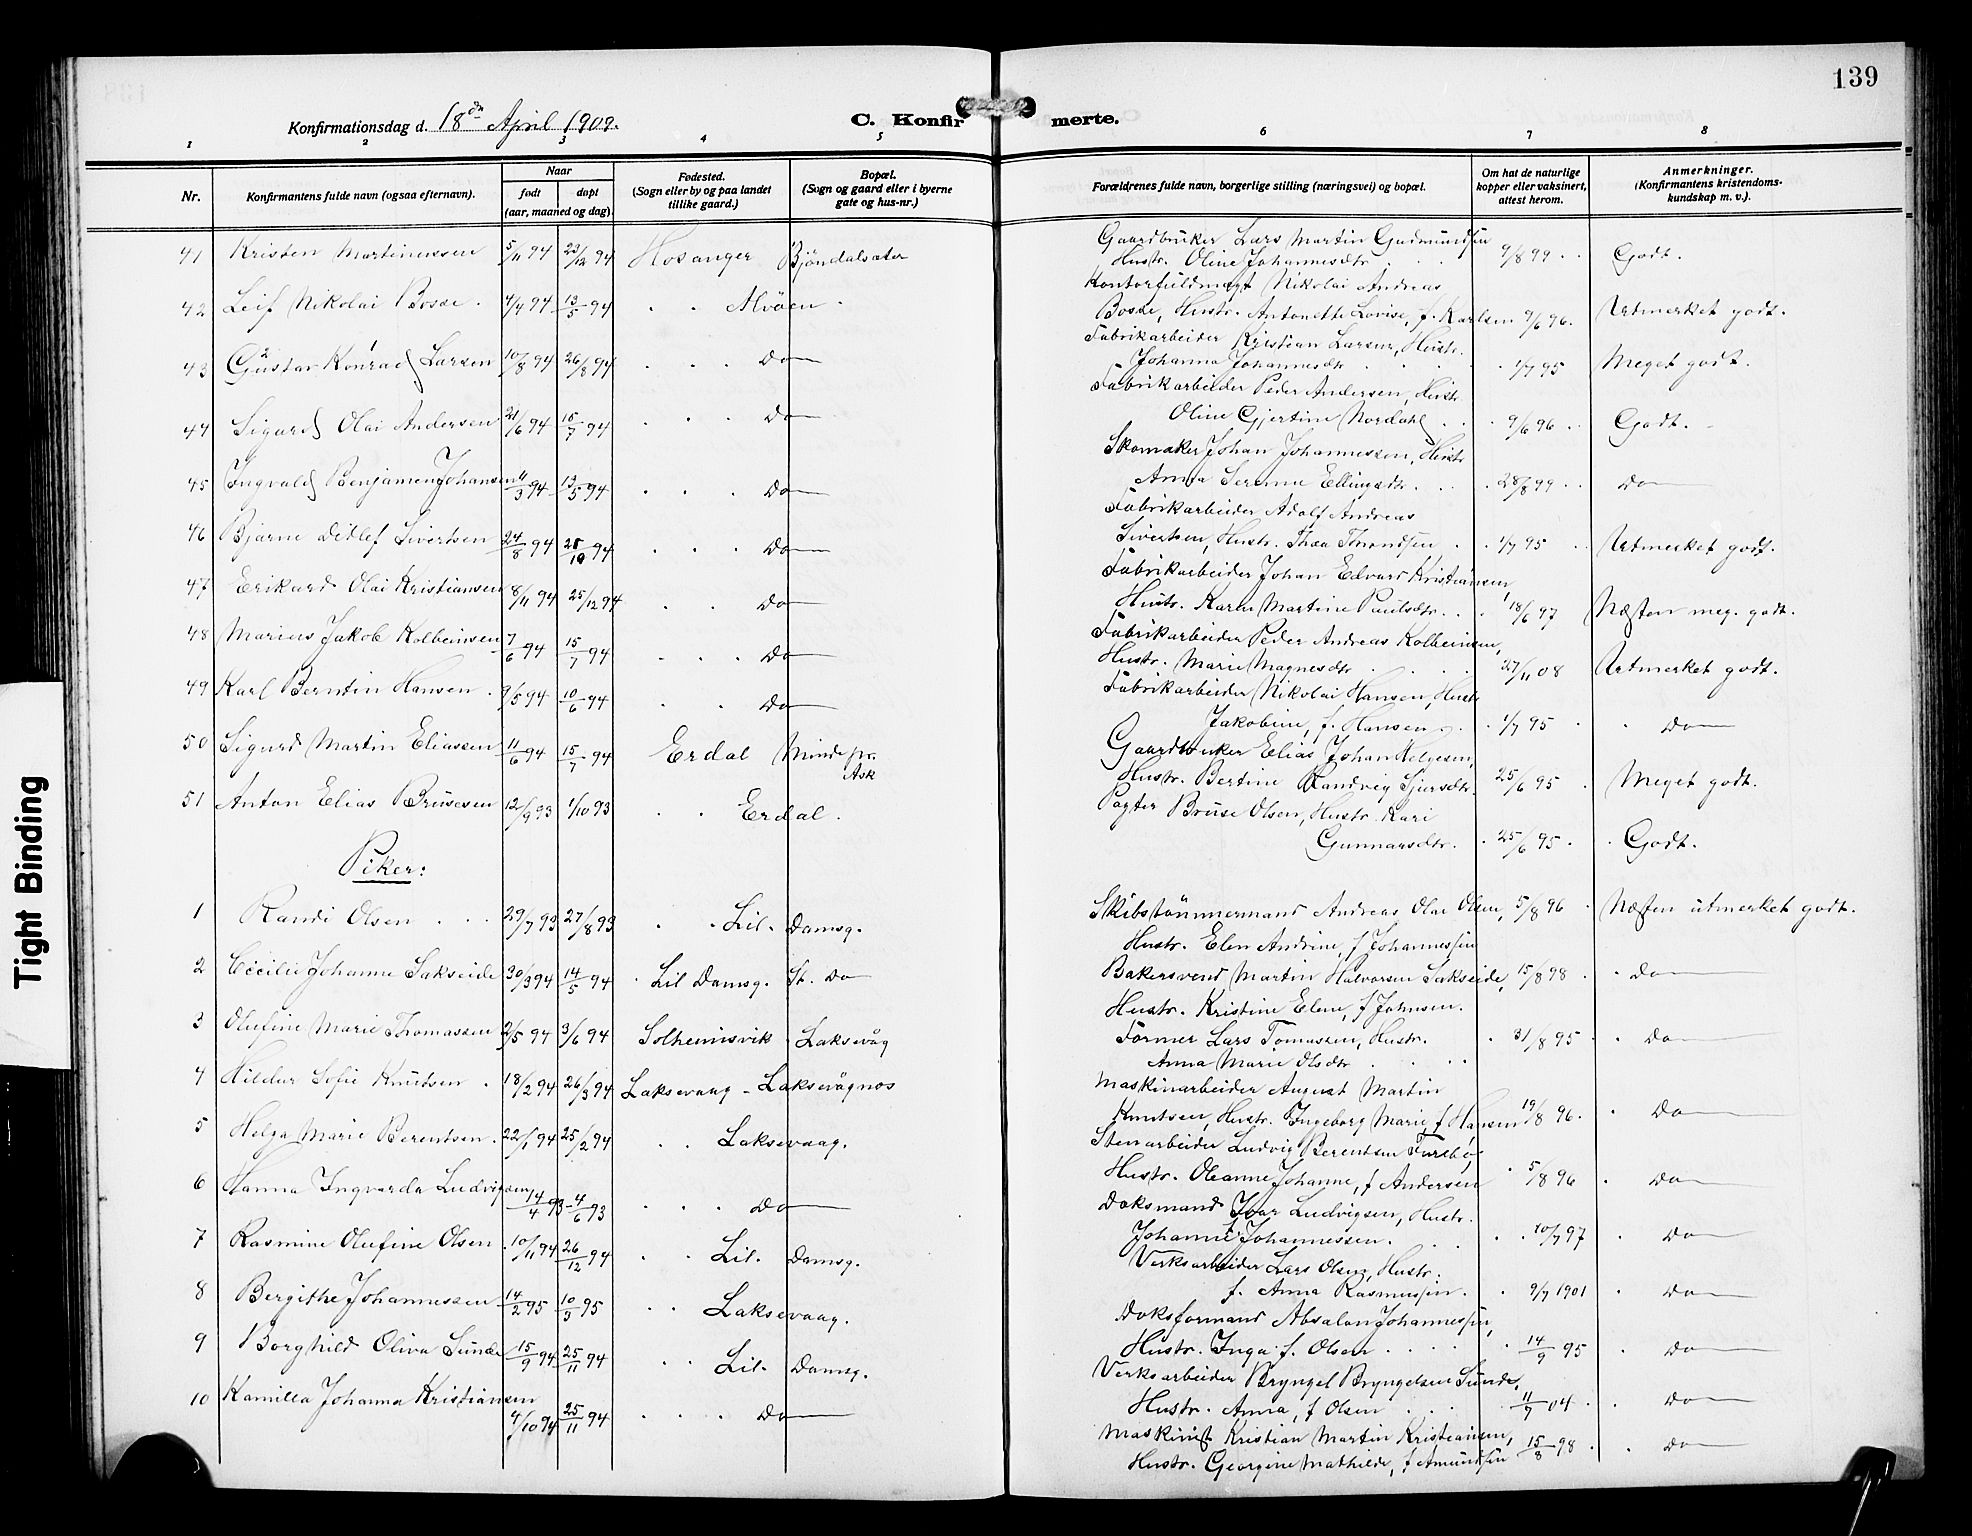 139
Konfirmationsdag d. 18de April 1909.
C. Konfirmerte.
1 2 3 4 5 6 7 8
Nr.
Konfirmantens fulde navn (ogsaa efternavn).
Naar
født
døpt
(aar, maaned og dag).
Fødested.
(Sogn eller by og paa landet
tillike gaard.)
Bopæl.
(Sogn og gaard eller i byerne
gate og hus-nr.)
Forældrenes fulde navn, borgerlige stilling (næringsvei) og bopæl.
Om hat de naturlige
kopper eller vaksinert,
attest herom.
Anmerkninger.
(Konfirmantens kristendoms-
kundskap m. v.).
41 Kristen Martinussen 5/11 94 23/12 94 Hosanger Bjöndalsæter
Gaardbruker Lars Martin Gudmundsen
Hustr. Oline Johannesdtr. 9/8 99 Godt.
42 Leif Nikolai Bosse. 4/4 94 13/5 94 Alvöen
Kontorfuldmægt Nikolai Andreas
Bosse, Hustr. Antonette Lovise, f. Karlsen 9/6 96. Utmerket godt.
43 Gustav Konrad Larsen 10/8 94 26/8 94 Do
Fabrikarbeider Kristian Larsen, Hustr.
Johanna Johannesdtr 1/7 95 Meget godt.
44 Sigurd Olai Andersen 21/6 94 15/7 94 Do
Fabrikarbeider Peder Andersen, Hustr.
Oline Gjertine Nordahl 9/6 96 Godt.
45 Ingvald Benjamen Johansen 11/3 94 13/5 94 Do
Skomaker Johan Johannessen, Hustr
Anna Serine Ellingsdtr. 28/8 99 Do
46 Bjarne Ditlef Sivertsen 24/8 94 28/10 94 Do
Fabrikarbeider Adolf Andreas
Sivertsen, Hustr. Thea Throndsen 1/7 95 Utmerket godt.
47 Erikard Olai Kristiansen 8/11 94 25/12 94 Do
Fabrikarbeider Johan Edvard Kristiansen,
Hustr. Karen Martine Paulsdtr. 18/6 97 Næsten meg. godt.
48 Marius Jakob Kolbeinsen 7/6 94 15/7 94 Do
Fabrikarbeider Peder Andreas Kolbeinsen,
Hustr. Marie Magnesdtr 27/11 08 Utmerket godt.
49 Karl Berntin Hansen. 9/5 94 10/6 94 Do
Fabrikarbeider Nikolai Hansen, Hustr
Jakobine, f. Hansen 1/7 95 Do
50 Sigurd Martin Eliassen 11/6 94 15/7 94 Erdal Minde pr.
Ask
Gaardbruker Elias Johan Helgesen,
Hustr. Bertine Randvig Sjursdtr. 25/6 95 Meget godt.
51 Anton Elias Brusesen 12/9 93 1/10 93 Erdal.
Pagter Bruse Olsen, Hustr. Kari
Gunnarsdtr. 25/6 95. Godt.
Piker:
1 Randi Olsen 29/7 93 27/8 93 Lil. Damsg.
Skibstömmermand Andreas Olai Olsen, 5/8 96 Næsten utmerket godt.
Hustr. Elen Andrine, f Johannessen
2 Cecilie Johanne Sakseide 30/3 94 14/5 94 Lil Damsg. St. Do
Bakersvend Martin Halvorsen Sakseide, 15/8 98 Do
Hustr. Kristine Elene, f Johnsen.
3 Olufine Marie Thomassen 2/5 94 3/6 94 Solheimsvik Laksevåg
Former Lars Tomassen, Hustr. 31/8 95 Do
Anna Marie Olsdtr
4 Hildur Sofie Knutsen 18/2 94 26/3 94 Laksevaag - Laksevågnes
Maskinarbeider August Martin
Knutsen, Hustr. Ingeborg Marie, f Hansen 19/8 96. Do
5 Helga Marie Berentsen. 22/1 94 25/2 94 Laksevaag.
Stenarbeider Ludvig Berentsen
Hustr. Oleanne Johanne, f Andersen 5/8 96 Do
6 Hanna Ingvarda Ludvigsen 14/4 93 4/6 93 Do
Doksmand Ivar Ludvigsen, Hustr.
Johanne Johannessen. 10/7 97 Do
7 Rasmine Olufine Olsen 10/11 94 26/12 94 Lil. Damsg.
Verksarbeider Lars Olsen, Hustr.
f. Anna Rasmussen. 9/7 1901 Do
8 Bergithe Johannessen 14/2 95 10/3 95 Laksevaag.
Doksformand Absalon Johannessen,
Hustr. Inga f. Olsen 14/9 95 Do
9 Borghild Oliva Sunde 15/9 94 25/11 94 Lil. Damsg.
Verksarbeider Bryngel Bryngelsen Sunde,
Hustr. Anna, f Olsen 11/7 04 Do
10 Kamilla Johanna Kristiansen 4/10 94 25/11 94 Do
Maskinist Kristian Martin Kristiansen, 15/8 98 Do
Hustr. Georgine Mathilde, f Amundsen
Tight Binding